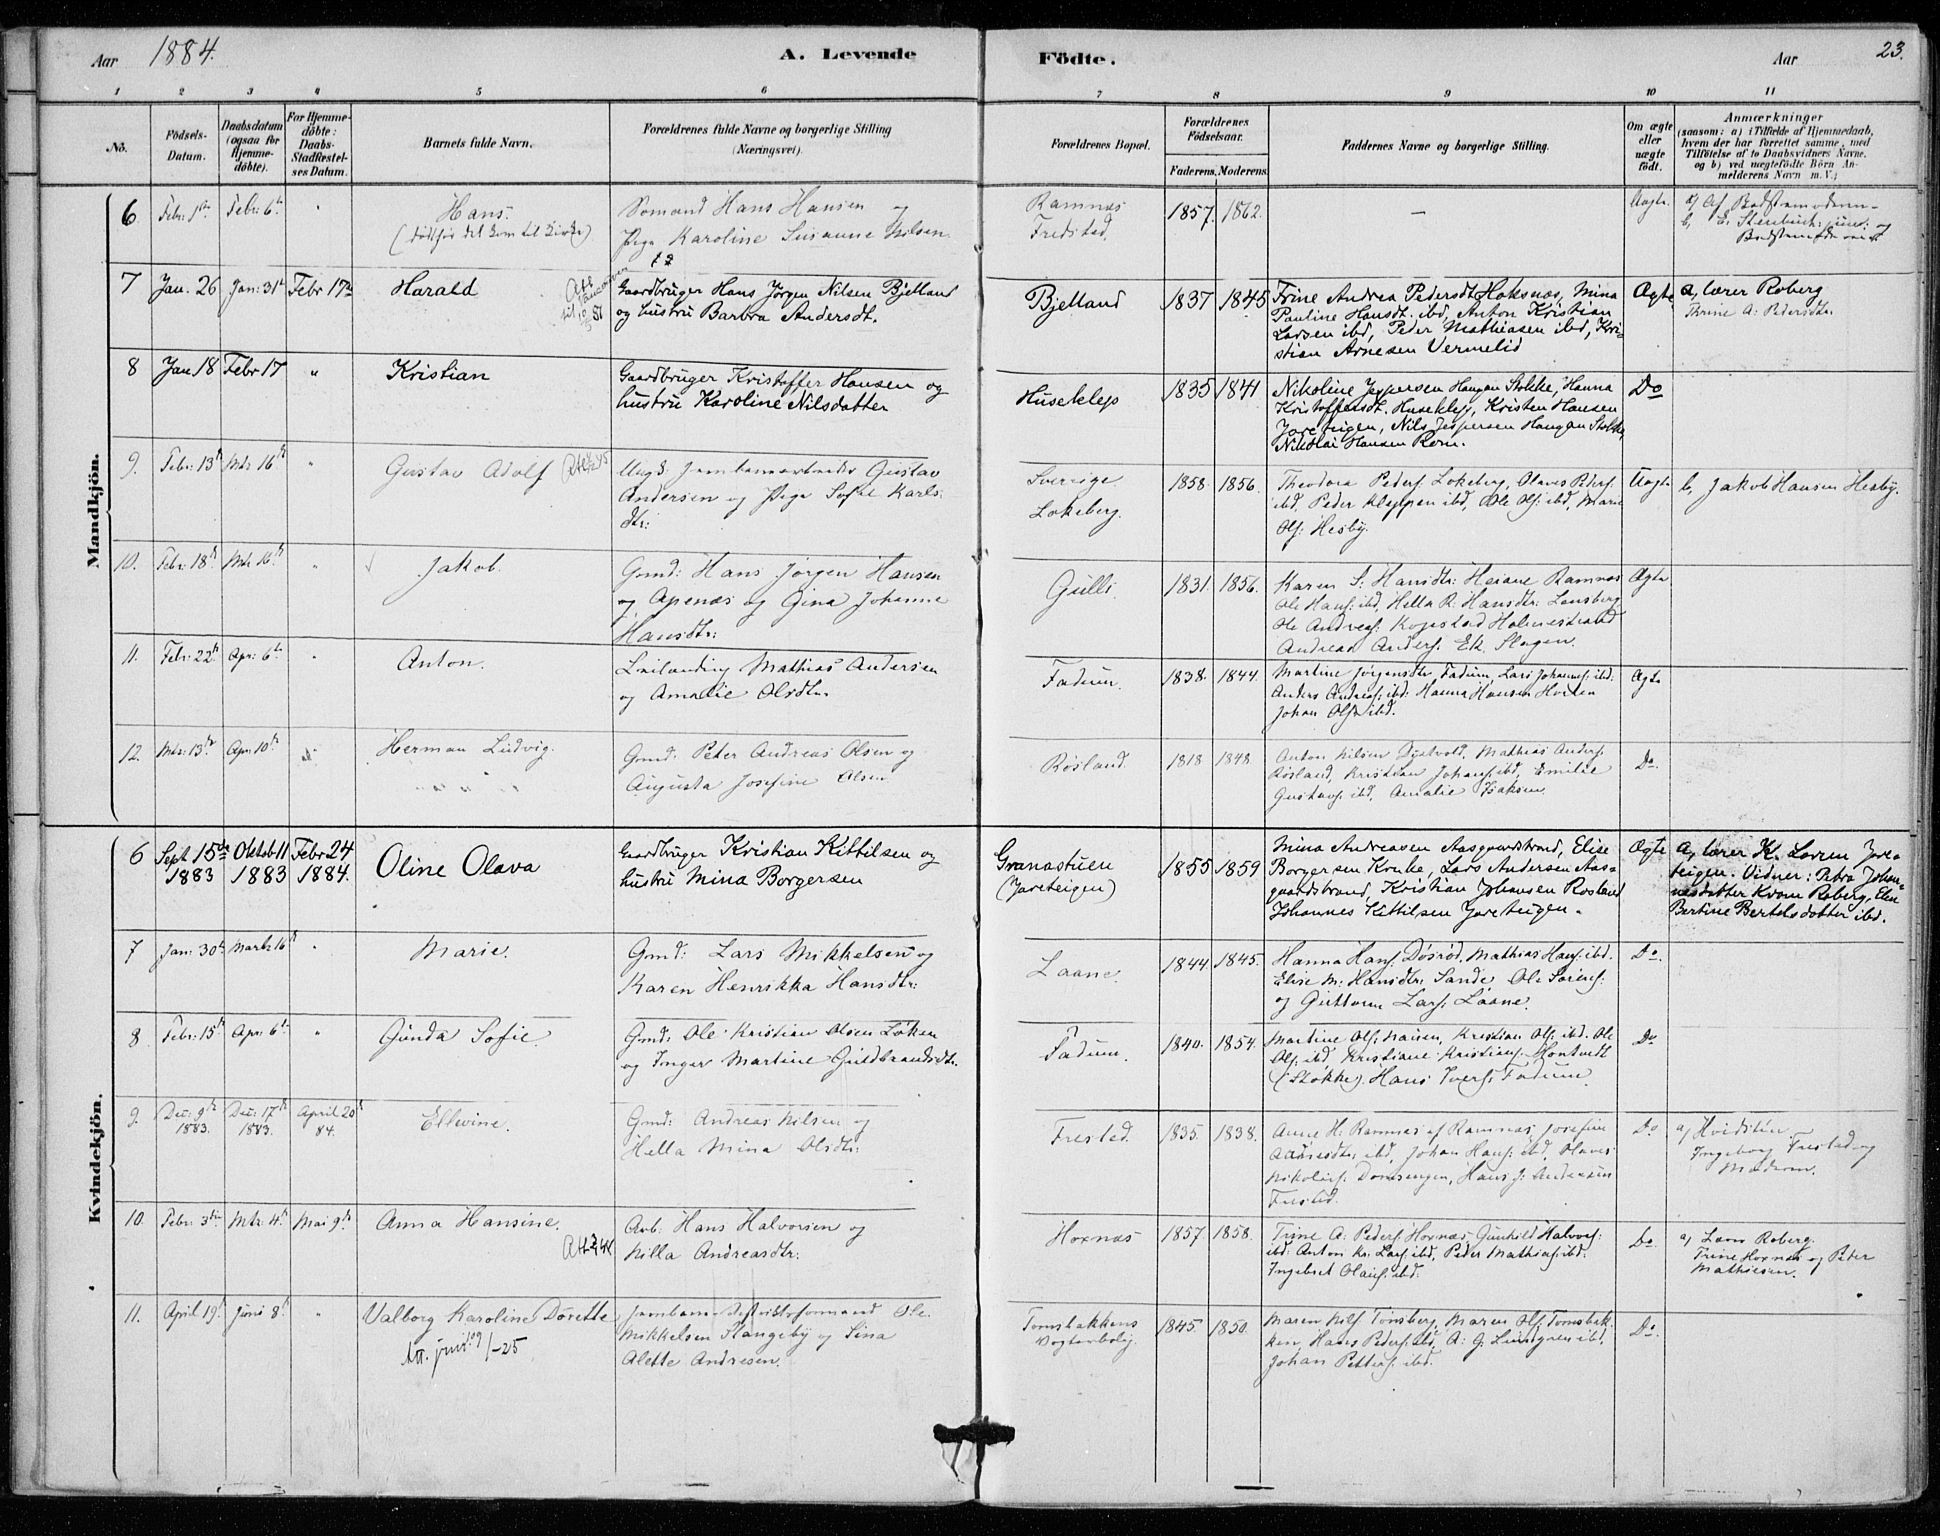 Aar 1884.
A. Levende
Födte.
Aar
23.
1 2 3 4 5 6 7 8 9 10 11
No.
Födsels-Datum.
Daabsdatum (ogsaa for Hjemme-döbte).
For Hjemme-döbte: Daabs-Stadfæstel-ses Datum.
Barnets fulde Navn.
Forældrenes fulde Navne og borgerlige Stilling (Næringsvei).
Forældrenes Bopæl.
Forældrenes Födselsaar.
Faderens. Moderens.
Faddernes Navne og borgerlige Stilling.
Om ægte eller uægte födt.
Anmærkninger
(saasom: a) i Tilfælde af Hjemmedaab,
hvem der har forrettet samme, med
Tilföielse af to Daabsvidners Navne,
og b) ved uægtefödte Börn An-
melderens Navn m. V.;
Mandkjön.
6 Febr: 1ste Febr: 6te " Hans.
(död før det kom til Kirke)
Sømand Hans Hansen og
Pige Karoline Susanne Nilsen
Ramnæs
Fredsted
1857. 1862. — Uægte
7 Jan. 26 Jan: 31te Febr 17de Harald
Gaardbruger Hans Jørgen Nilsen Bjelland
og hustru Barbra Andersdt.
Bjelland 1837 1845
Trine Andrea Pedersdt Hoksnæs, Mina
Pauline Hansdt. ibd, Anton Kristian
Larsen ibd, Peder Mathiasen ibd, Kri-
stian Arnesen Vermelid
Ægte a, lærer Roberg
Thrine A: Pedersdtr.
8 Jan 18 Febr 17 " Kristian
Gaardbruger Kristoffer Hansen og
hustru Karoline Nilsdatter
Huseklep 1835 1841
Nikoline Jespersen Haugan Stokke, Hanna
Kristoffersdt. Huseklep, Kristen Hansen
Jareteigen, Nils Jespersen Haugan Stokke,
Nikolai Hansen Rom.
Do
9. Febr: 13de Mts 16de " Gustav Adolf
Ungk: Jernbanearbeider Gustav
Andersen og Pige Sofie Karls-
dtr:
Sverige
Lokeberg.
1858. 1856.
Theodora Peders: Lokeberg, Olaves Peders:
ibd, Peder Kleppan ibd, Ole Ols: ibd, Marie
Ols: Hesby.
Uægte b, Jakob Hansen Hesby.
10. Febr: 18de Mts 16de " Jakob.
Gmd: Hans Jørgen Hansen
og Apenæs og Gina Johanne
Hansdtr:
Gulli 1831. 1856.
Karen S: Hansdtr: Heiane Ramnæs
Ole Hans: ibd, Hella R: Hansdtr: Lensberg
Ole Andreas: Kopstad Holmestrand
Andreas Anders: Ek. Slagen.
Ægte
11. Febr: 22de Apr: 6te " Anton.
Leilænding Mathias Andersen
og Amalie Olsdtr.
Fadum. 1838. 1844.
Martine Jørgensdtr Fadum, Lars Johanns: ibd.
Anders Andreas: ibd: Hanna Hansen Horten
Johan Ols: ibd.
Ægte
12. Mts: 13de Apr: 10de Herman Ludvig.
Gmd: Peter Andreas Olsen og
Augusta Josefine Olsen
Røsland. 1818 1848
Anton Nilsen Dystvold, Mathias Anders:
Røsland, Kristian Johans: ibd, Emilie
Gustavs: ibd, Amalie Isaksen.
Do.
Kvindekjön.
6 Sept 15de 1883 Oktob 11 1883 Febr 24 1884. Oline Olava
Gaardbruger Kristian Kittilsen og
hustru Mina Borgersen
Granastuen
(Jareteigen)
1855 1859
Mina Andreasen Aasgaardstrand, Elise
Borgersen Krake, Lars Andersen Aas-
gaardstrand, Kristian Johansen Rosland
Johannes Kittilsen Jareteigen.
Ægte
a, lærer K. Larsen Jare-
teigen. Vidner: Petra Johan-
nesdatter Kvam Roberg, Elen
Bertine Bertelsdatter ibd.
7 Jan: 30te Marts 16de " Marie.
Gmd: Lars Mikkelsen og
Karen Henrikka Hansdtr:
Laane. 1844 1845.
Hanna Hans: Døsrød. Mathias Hans: ibd.
Elise M: Hansdtr: Sande Ole Sørens:
og Guttorm Lars: Laane.
Do.
8 Febr: 15de Apr: 6te " Gunda Sofie.
Gmd: Ole Kristian Olsen Løken
og Inger Martine Guldbrandsdtr.
Fadum. 1840. 1854.
Martine Ols: Nauen, Kristian Ols: ibd. Ole
Ols: ibd Kristiane Kristians: Hontvedt
(Stokke). Hans Ivers: Fadum.
Do
9. Dec: 9de 1883. Dec: 17de 1883. April 20de 84. Ellevine.
Gmd: Andreas Nilsen og
Hella Mina Olsdtr:
Frested. 1835. 1838.
Anne H: Ramnæs af Ramnæs, Josefine
ibd, Johan Hans: ibd, Olaves
Nikolais: Domsengen, Hans J: Andersen
Frested.
Do
a, Hvidsten.
Ingeborg Frested og
Moderen.
10. Febr: 3die Mts: 4de Mai 9de Anna Hansine.
Arb: Hans Halvorsen og
Nilla Andreasdtr:
Hoxnæs 1857. 1858.
Trine A: Peders: Hoxnæs, Gunhild Halvors:
ibd: Anton Kr. Lars: ibd, Peder Mathias: ibd.
Ingebret Olaus: ibd:
Do.
a, Lærer Roberg.
Trine Hoxnæs og Peder
Mathiesen.
11. April 19de Juni 8de " Valborg Karoline Dorette
Att.
Mikkelsen Slangeby og Sina
Alette Andresen.
Tomsbakkens
Vogterbolig.
1845. 1850.
Maren Nils: Tønsberg, Maren Ols: Tomsbak-
ken, Hans Peders: ibd, A: G. Lundgren ibd.
Johan Petters: ibd.
Do.